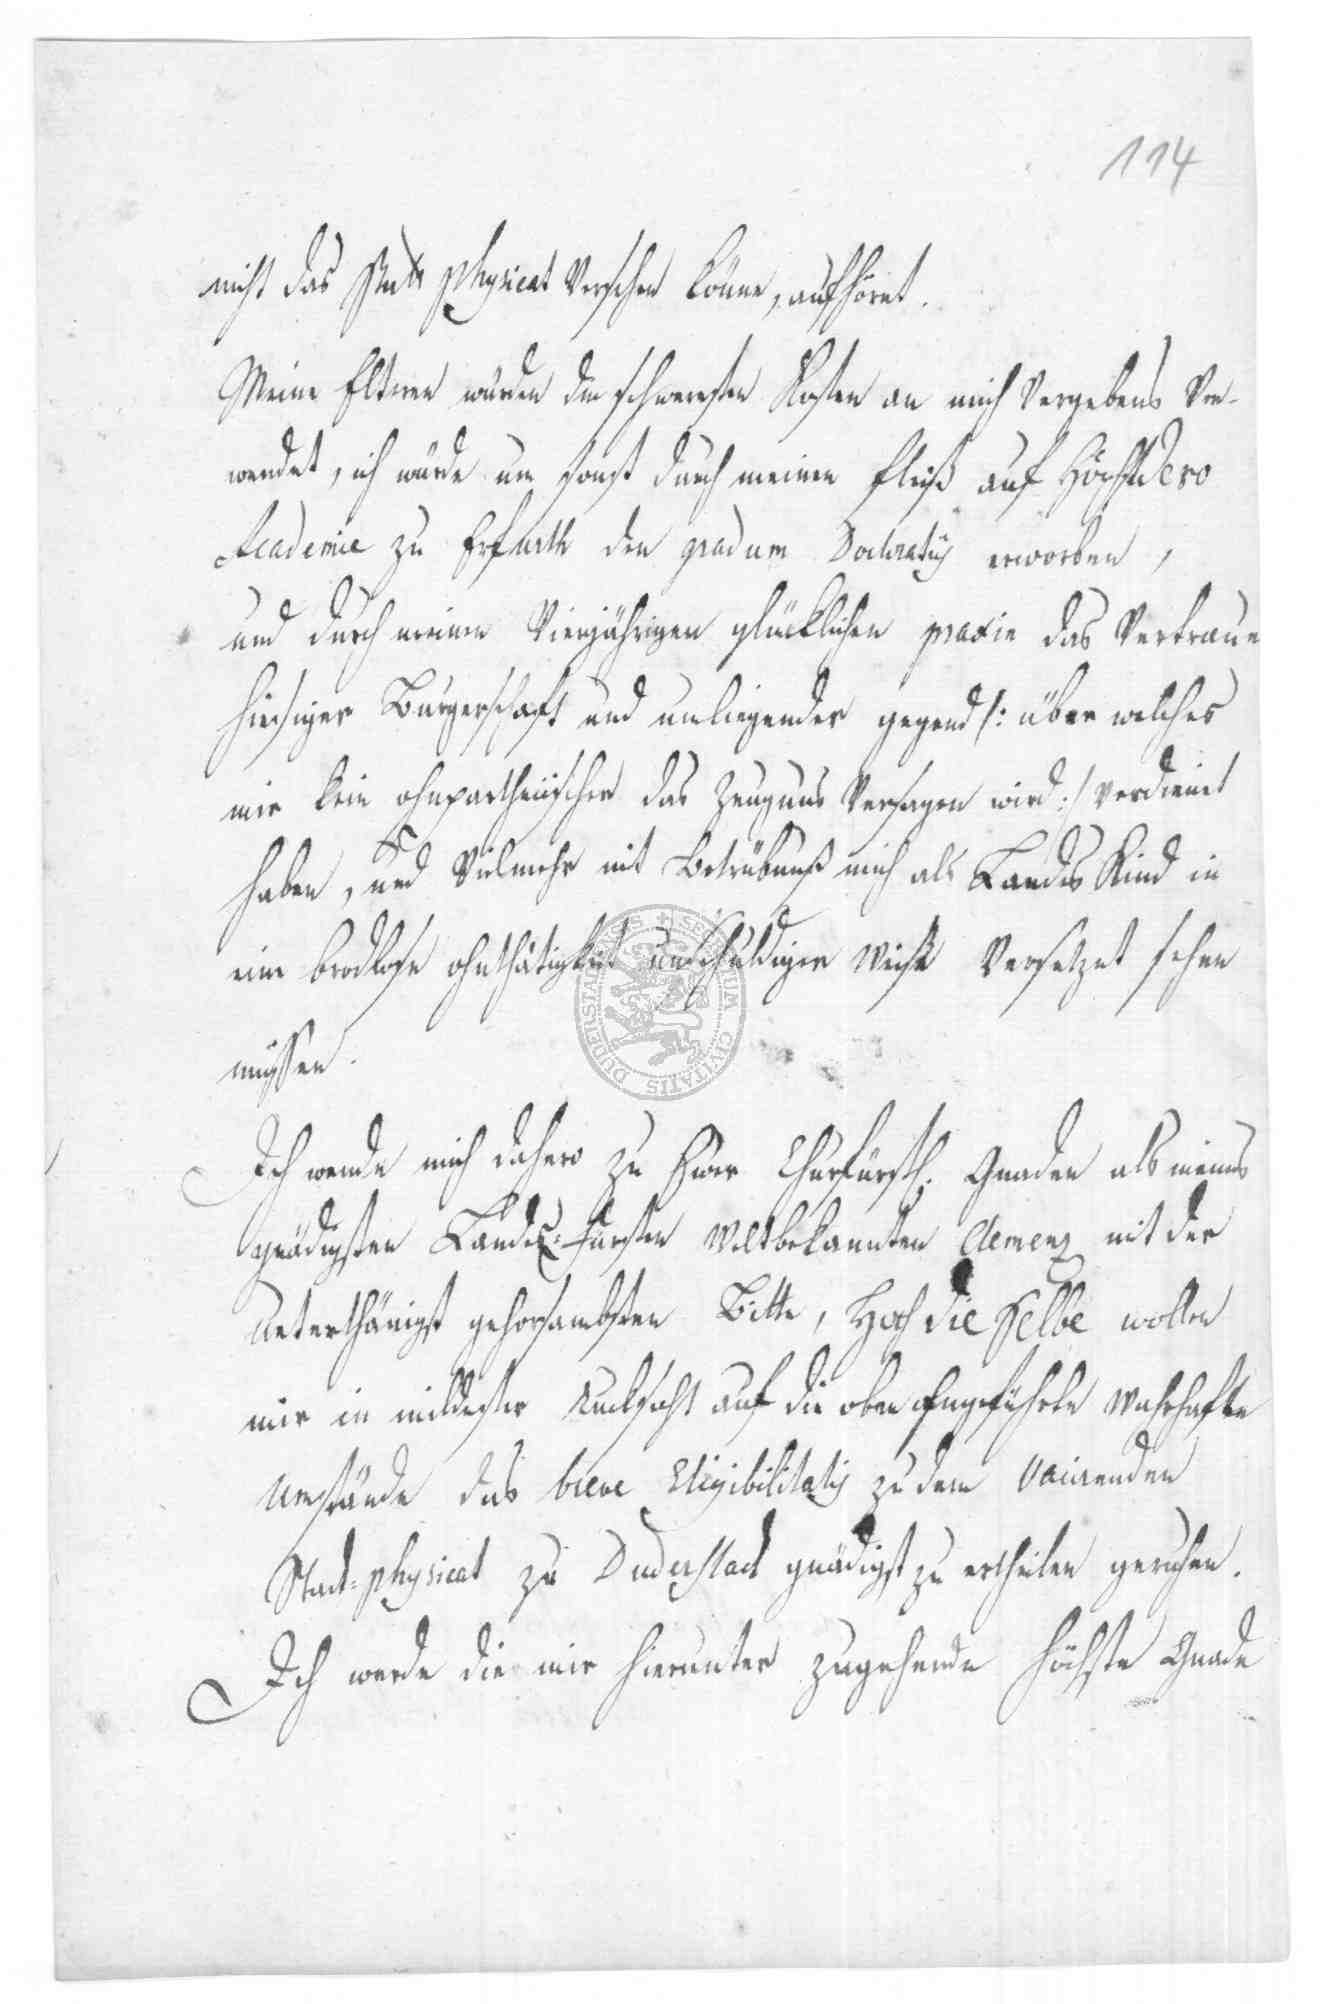 114
nicht das Stadt Physicat Versehen könne, aufhöret.
Meine Elteren würden die schweresten Kosten an mich Vergebens Ver-
wendet, ich würde um sonst durch meinen Fleiß auf Höchst Dero
Academie zu Erfurth den gradum Doctoratus erworben,
und durch meinen Vierjährigen glücklichen praxin das Vertrauen
hiesiger Burgerschaft und umliegender gegend /: über welches
mir kein ohnpartheiischer das Zeugnus Versagen wird :/ verdienet
haben, und Vielmehr mit Betrübnuß mich als Landes Kind in
eine brodlose ohnthätigkeit unschuldiger Weise Versetzet sehen
müssen.
Ich wende mich dahero zu Ewer Churfürstl. Gnaden als meines
gnädigsten Landes-Fürsten Weltbekannten Clemenz mit der
unterthänigst gehorsambsten Bitte, Hoch die selbe wollen
mir in mildester Rucksicht auf die oben angeführte Wahrhafte
Umstände das breve Eligibilitatis zu dem Vacirenden
Stadt-Physicat zu Duderstadt gnädigst zu ertheilen geruhen.
Ich werde die mir hierunter zugehende höchste Gnade
SIGILLUM CIVITATIS DUDERSTADENSIS